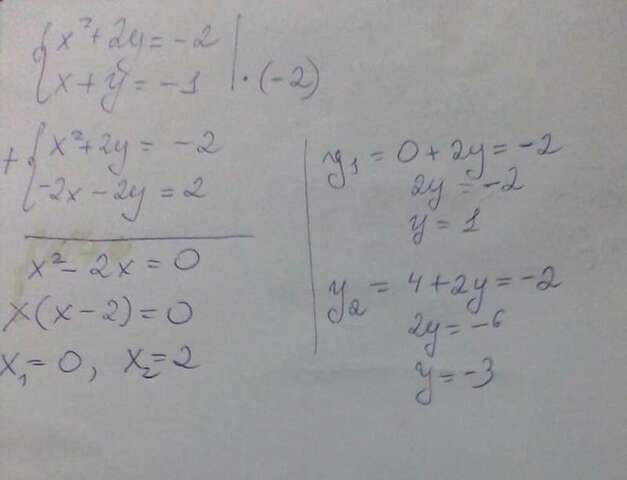 x²+2y=-2
x+y=-1 | ·(-2)
+ x²+2y=-2
-2x-2y=2
x²-2x=0
x(x-2)=0
x₁=0, x₂=2
y₁=0+2y=-2
2y=-2
y=1
y₂=4+2y=-2
2y=-6
y=-3